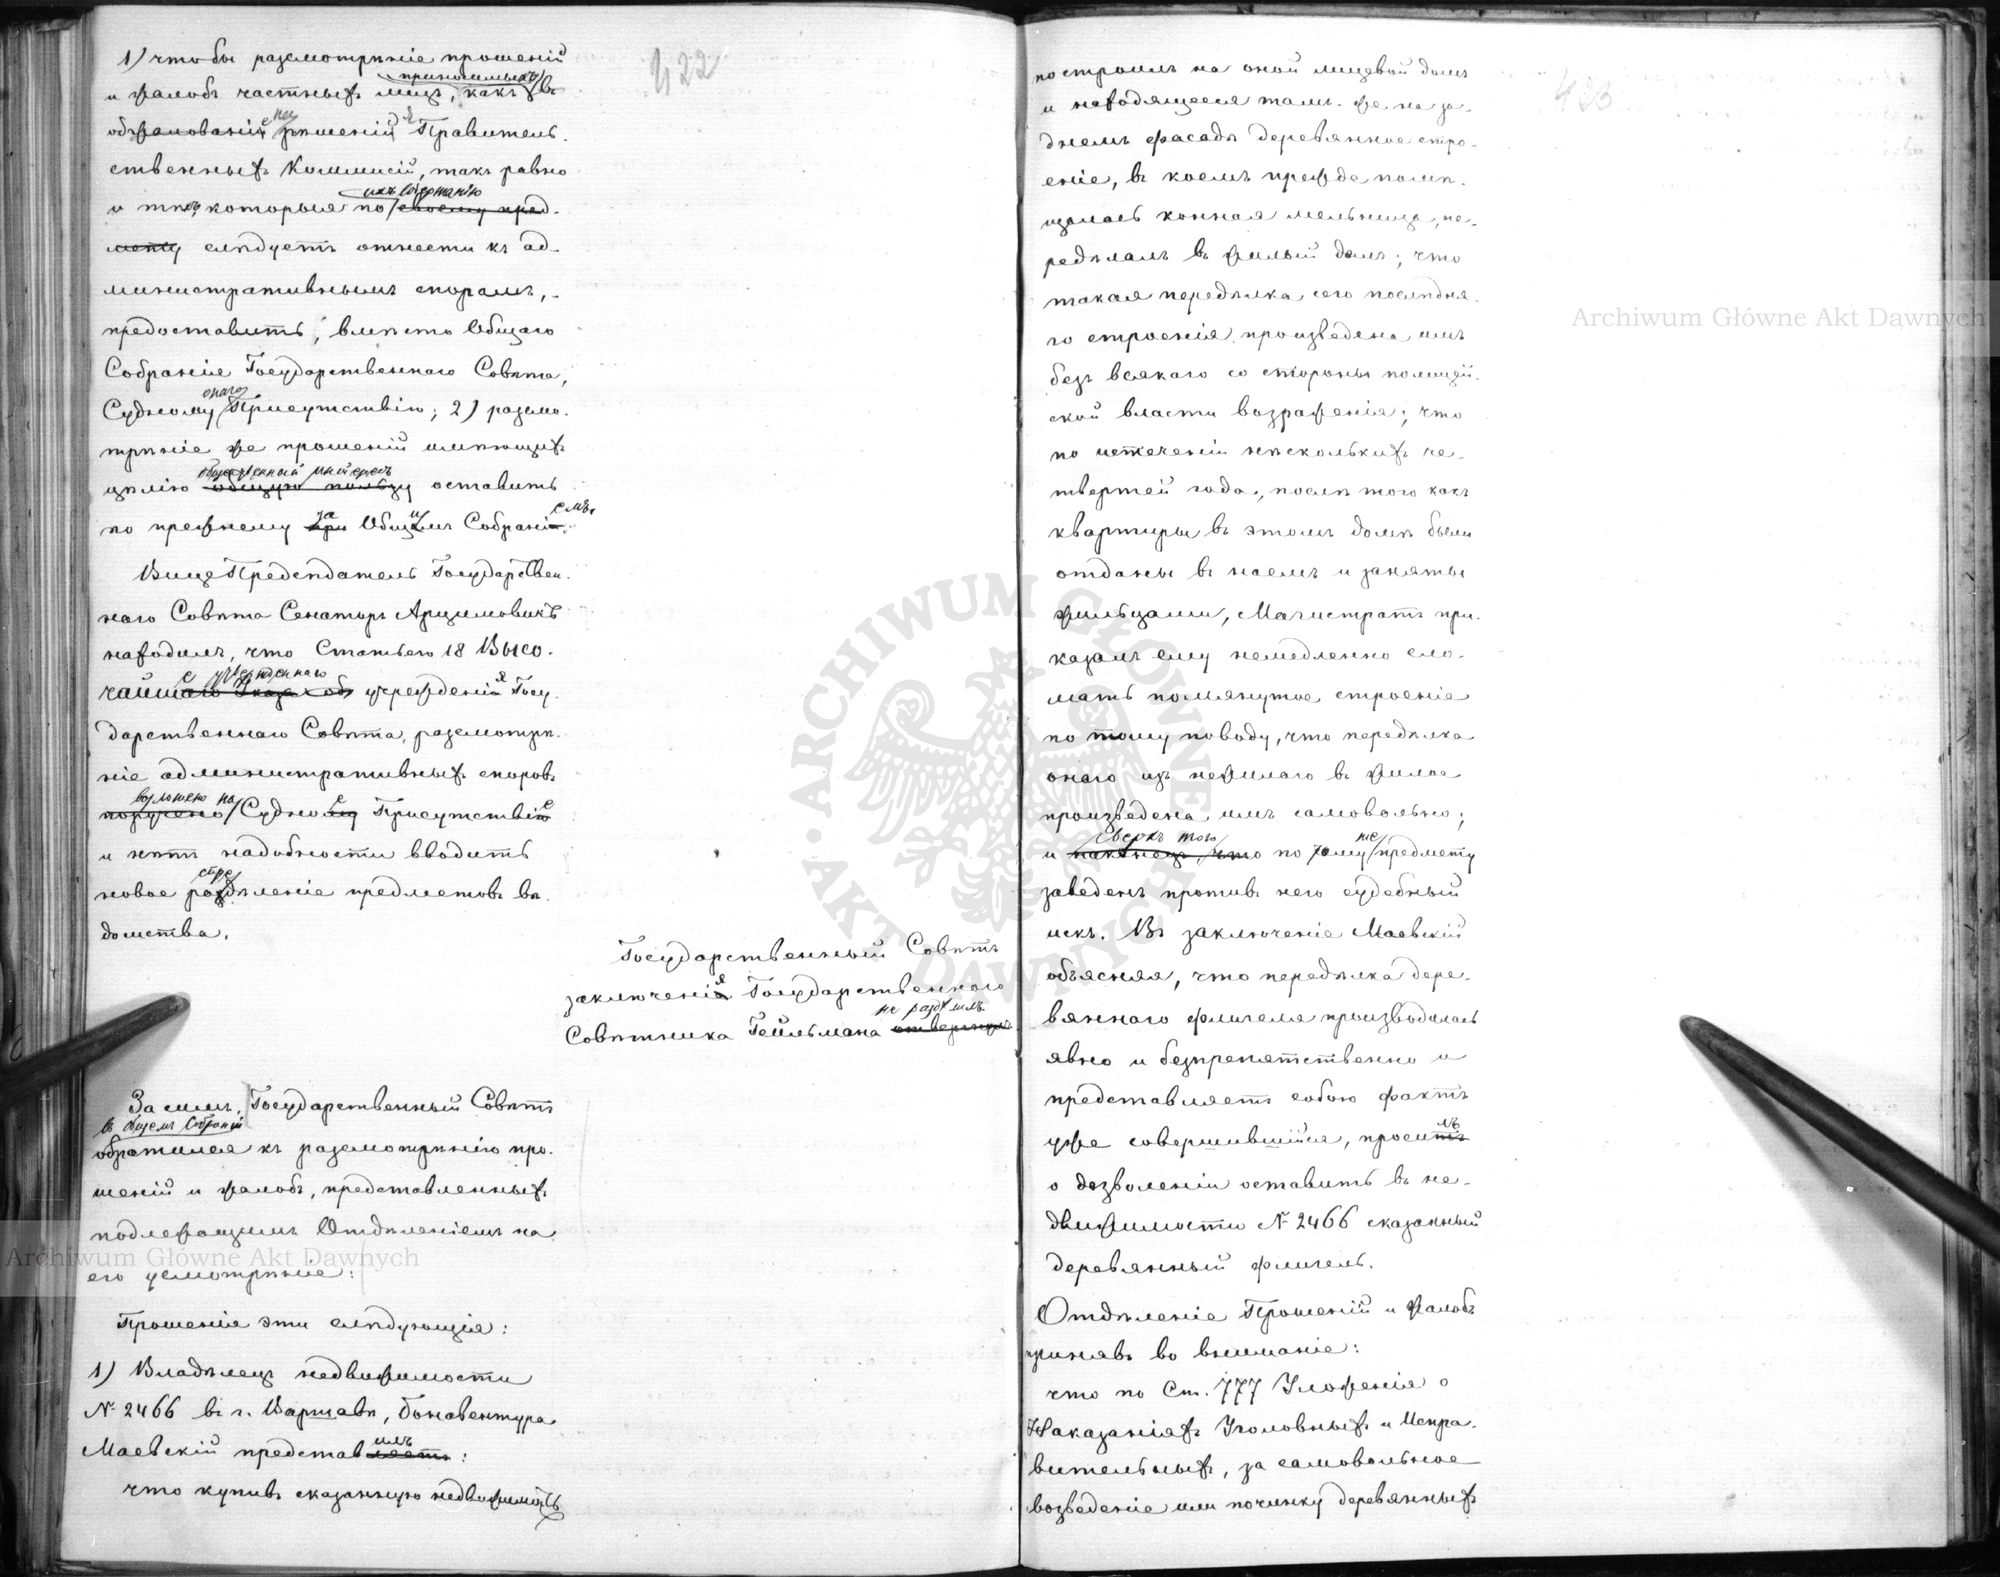 422
1) чтобы разсмотрѣніе прошеній
приносимыхъ
и жалобъ частныхъ лицъ, какъ въ
на
обжалованіе рѣшеній Правитель-
ственныхъ Коммисій, такъ равно
ихъ содержанію
и тѣхъ, которыя по своему пред-
мету слѣдуетъ отнести къ ад-
министративнымъ спорамъ, -
предоставить, вмѣсто Общаго
Собранія Государственнаго Совѣта,
онаго
Судному Присутствію; 2) разсмо-
трѣніе же прошеній имѣющихъ
общественный интересъ
цѣлію общую пользу оставить
за
по прежнему при Общимъ Собраніемъ.
Вице Предсѣдатель Государствен-
наго Совѣта Сенаторъ Арцимовичъ
находилъ, что Статьею 18 Высо-
е учрежденнаго
чайшаго Указа объ учрежденія Госу-
дарственнаго Совѣта, разсмотрѣ-
ніе административныхъ споровъ
возложено на
поручено Судному Присутствію
и нѣтъ надобности вводить
опре
новое раздѣленіе предметовъ вѣ-
домства.
Государственный Совѣтъ
заключенія Государственнаго
не раздѣлилъ
Совѣтника Гейльмана отвергнулъ
За симъ, Государственный Совѣтъ
въ Общемъ Собраніи
обратился къ разсмотрѣнію про-
шеній и жалобъ, представленныхъ
подлежащимъ Отдѣленіемъ на
его усмотрѣніе:
Прошенія эти слѣдующія:
1) Владѣлецъ недвижимости
№ 2466 въ г. Варшавѣ, Бонавентура
илъ
Маевскій представляетъ:
что купивъ сказанную недвижимость
423
построилъ на оной лицевой домъ
и находящееся тамъ же на за-
днемъ фасадѣ деревянное стро-
еніе, въ коемъ прежде помѣ-
щалась конная мельница, пе-
редѣлалъ въ жилый домъ; что
такая передѣлка сего послѣдня-
го строенія, произведена имъ
безъ всякаго со стороны полицей-
ской власти возраженія; что
по истеченіи нѣсколькихъ че-
твертей года, послѣ того какъ
квартиры въ этомъ домѣ были
отданы въ наемъ и заняты
жильцами, Магистратъ при-
казалъ ему немедленно сло-
мать помянутое строеніе
по тому поводу, что передѣлка
онаго изъ нежилаго въ жилое
произведена имъ самовольно;
сверхъ того же
и наконецъ, что по тому предмету
заведенъ противъ него судебный
искъ. Въ заключеніе Маевскій
объясняя, что передѣлка дере-
вяннаго флигеля производилась
явно и безпрепятственно и
представляетъ собою фактъ
лъ
уже совершившійся, проситъ
о дозволеніи оставить въ не-
движимости № 2466 сказанный
деревянный флигель.
Отдѣленіе Прошеній и Жалобъ
принявъ во вниманіе:
что по Ст. 777 Уложенія о
Наказаніяхъ Уголовныхъ и Испра-
вительныхъ, за самовольное
возведеніе или починку деревянныхъ
Archiwum Główne Akt Dawnych
Archiwum Główne Akt Dawnych
ARCHIWUM GŁÓWNE AKT DAWNYCH